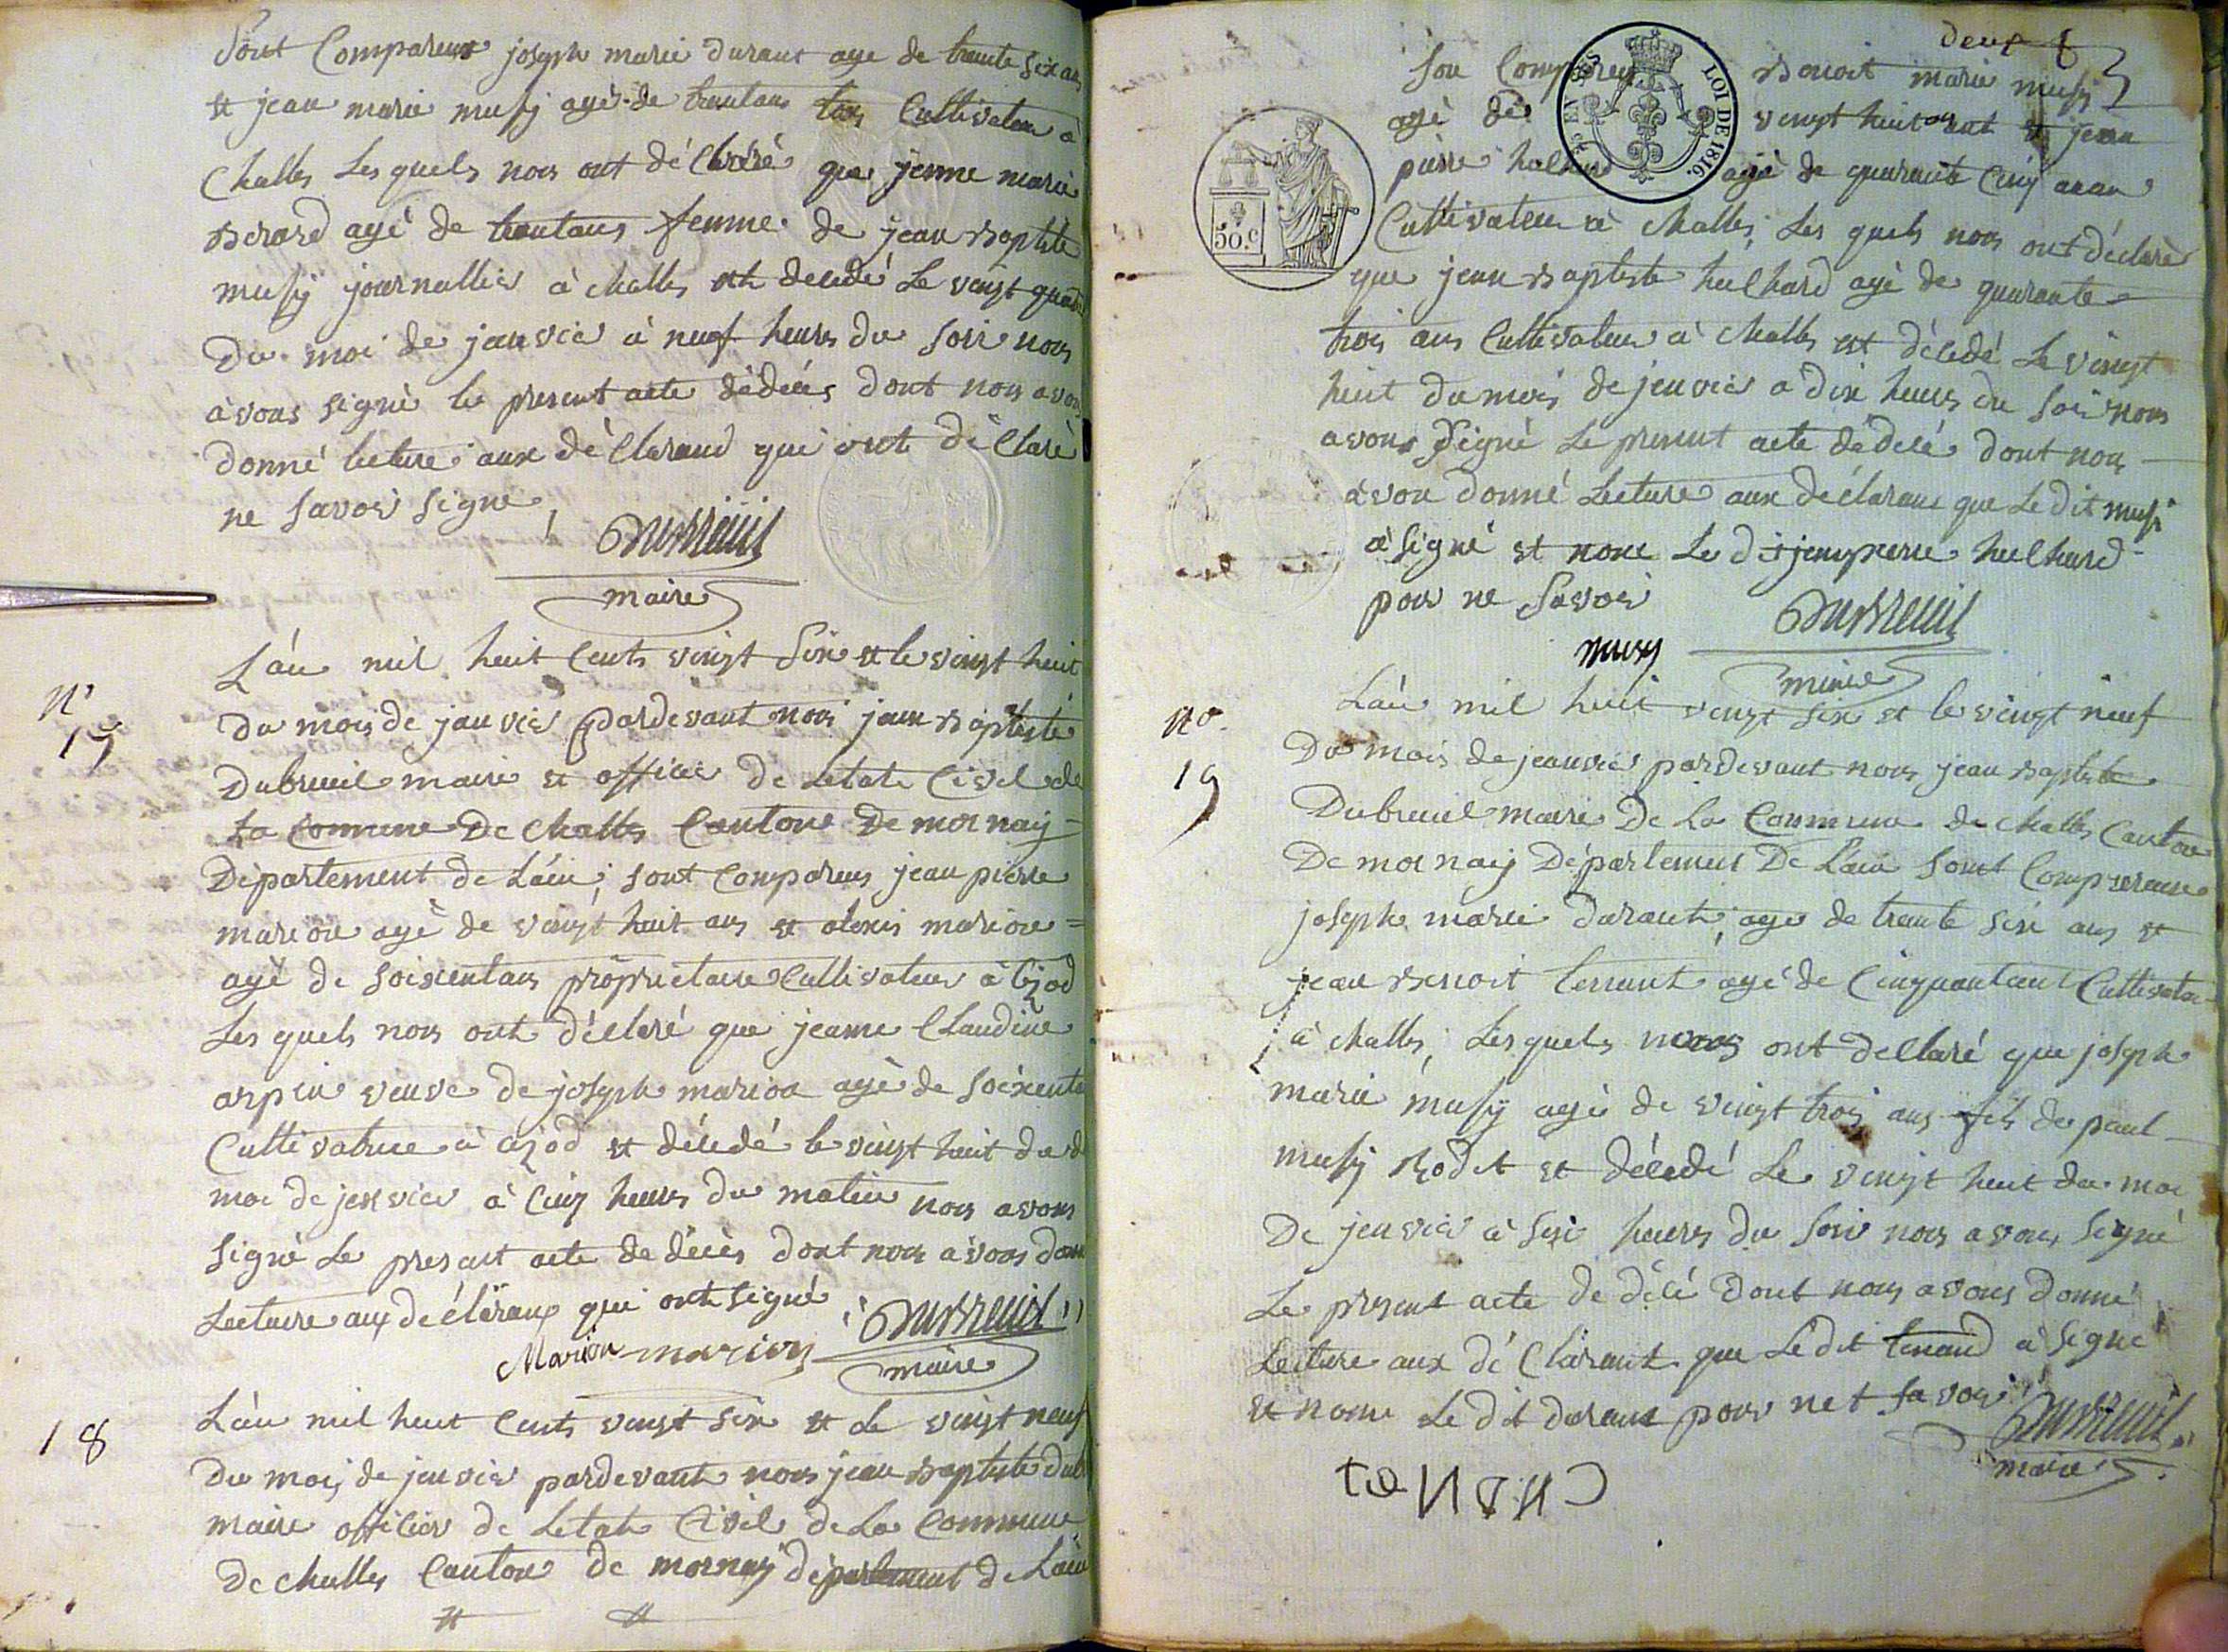 Sont Comparent joseph marie durant age de trante six ans
et jean marie musy agé de trantans tous Cultivateur a
Challes Les quels nous ont déClaré que jenne marie
Berard agé de trantans femme de jean Baptiste
musy journallier à challes est decedé Le vengt quatre
Du moi de janvier à neuf heures du soir nous
avons signé le present acte dédecés dont nous avons
donné lecture aux déClarand qui ont déClaré
ne savoir signe
Dubreuil
maire
N°
17
L'án mil huit Cents vingt Six et le vingt huit
Du mois de janvier pardevant nous jean Baptiste
Dubreuil maire et officier de Letat Civil de
La Commune De Challes Canton De mornay
Département de L'áin; sont Comparus jean pierre
marion agé de vengt huit ans et alexis marion =
agé de soixentans propriétaire Cultivateur à Cizod
Les quels nous ont déclaré que jeanne Claudine
arpin veuve de joseph marion agé de soixente
Cultivatrice à cizod et décedé le vingt huit du d
moi de jenvier à Cinq heures du matin nous avons
signé Le present acte de décès dont nous avons donné
Lecture aux déclarans qui ont signé
Marion marion Dubreuil
maire
18
L'án mil huit Cents vengt six et Le vingt neuf
Du mois de jenvier pardevant nous jean Baptiste Dub
maire officier de Letat Civil de La Commune
De challes Canton de mornay département de L'áin
deux 8
Son Compareu Benoit marie musy
agé de vengt huit ans ant et jean
pierre hulhard agé de quarante Cinq anan
Cultivateur à challes; Les quels nous ont déclaré
que jean Baptiste hulhard agé de quarante
trois ans Cultivateur à Challes est décedé Le vengt
huit du mois de jenvier à dix heures du soir nous
avons signé Le present acte dédecé dont nous
avon donné Lecture aux déclarans que Le dit musi
a signé et none Le dit jeanpierre hulhard
pour ne Savoir
Dubreuil
musy
maire
N°.
19
L'án mil huit vengt six et le vingt neuf
Du mois de jeanvier pardevant nous jean Baptiste
Dubreuil maire De La Commune de challes Canton
De mornay Département De L'ain sont Comparerans
joseph marie durant; age de trante six ans et
jean Benoit tenant agé de Cinquantant Cultivateur
à challes; Lesquels nous ont dellaré que joseph
marie musy agé de vengt trois ans fils de paul
musy Rodet et décedé Le vengt huit du moi
De jenvier à six heures du soir nous avons signé
Le present acte de décé dont nous avons donné
Lecture aux déClarant que Ledit tenand à signé
et none Le dit durant pour net savoir
Dubreuil
maire